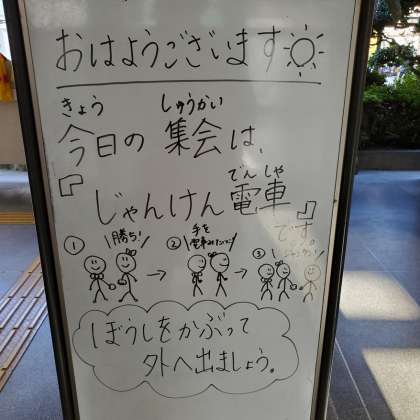 おはようございます
きょう しゅうかい
今日の 集会は、
でんしゃ
『じゃんけん電車』
です。
① 勝ち! → ② 手を → ③ ジャンケン!
ぼうしをかぶって
外へ出ましょう。